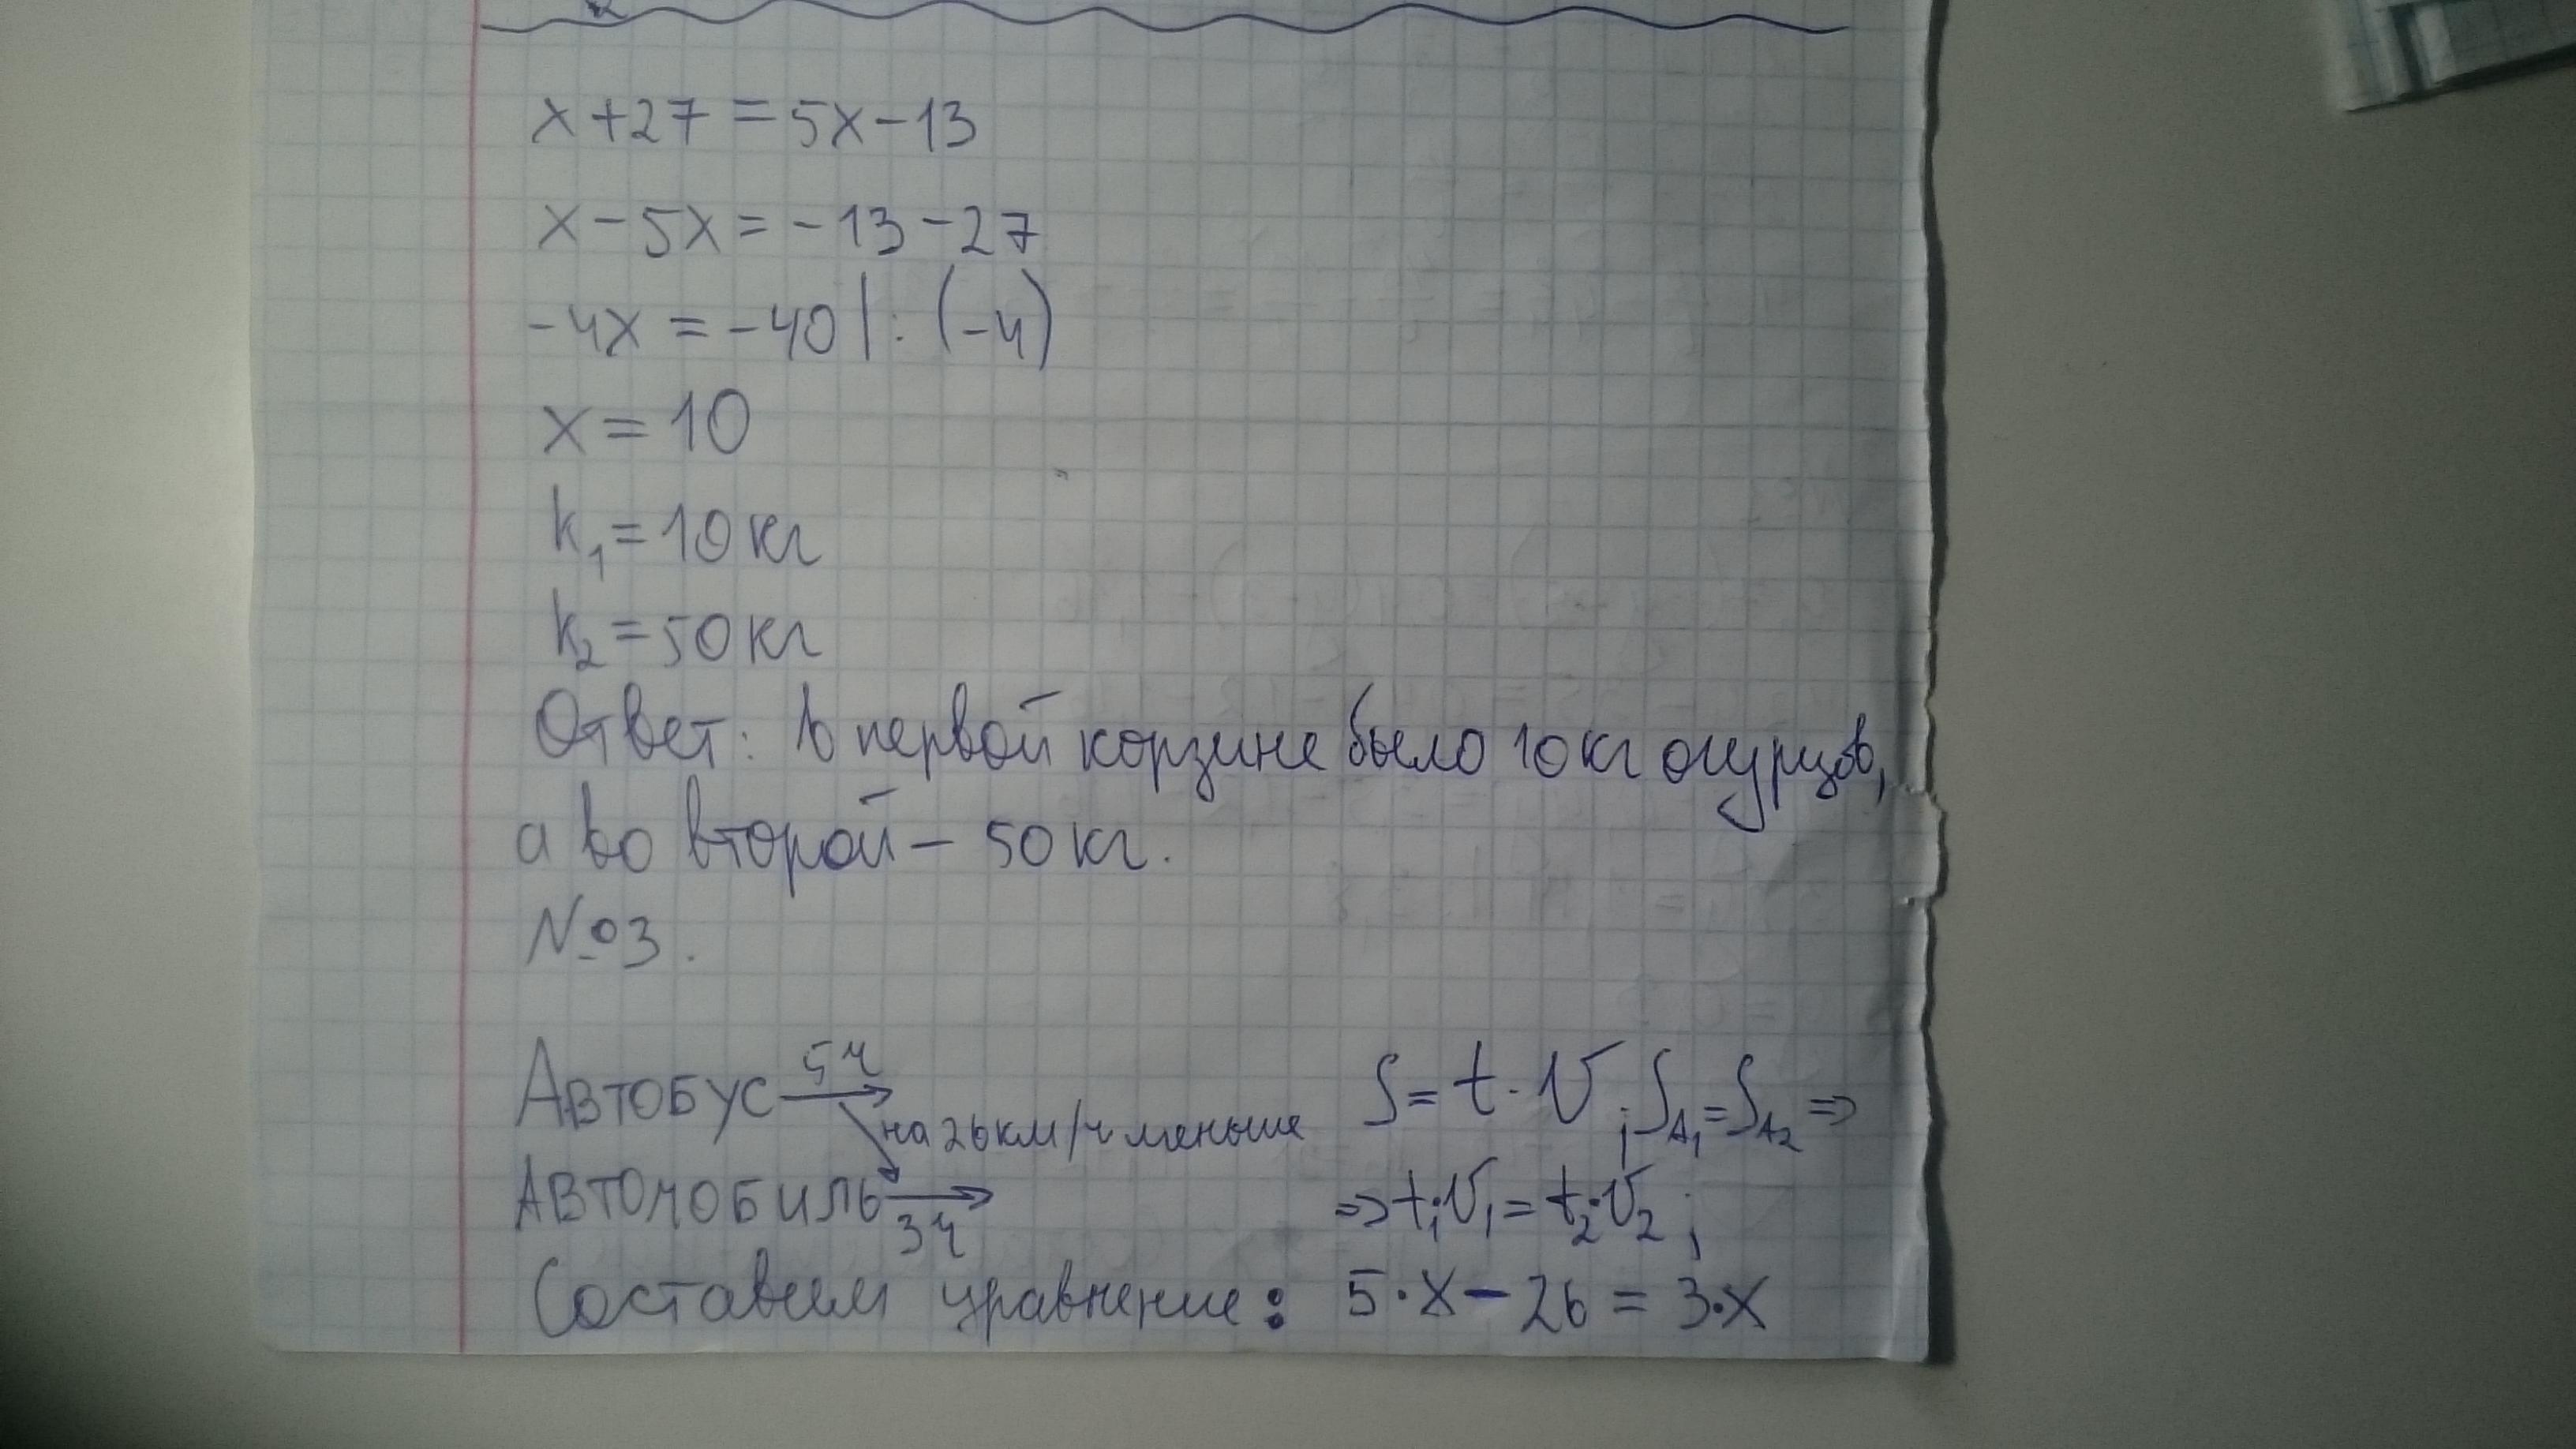 x+27=5x-13
x-5x=-13-27
-4x=-40|:(-4)
x=10
k₁=10кг
k₂=50кг
Ответ: в первой корзине было 10кг огурцов,
а во второй – 50кг.
№3.
Автобус 5ч → S=t·V; S_A₁=S_A₂ ⇒
на 26км/ч меньше
Автомобиль 3ч → ⇒t₁·V₁=t₂·V₂;
Составим уравнение: 5·x-26=3·x